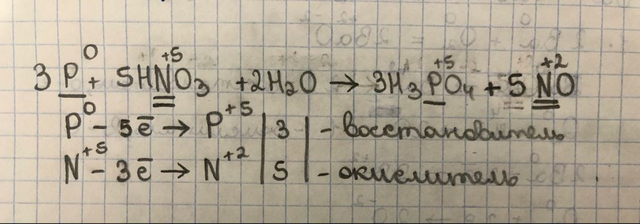 3P⁰ + 5HN⁺⁵O₃ + 2H₂O → 3H₃P⁺⁵O₄ + 5N⁺²O
P⁰ - 5ē → P⁺⁵ | 3 | - восстановитель
N⁺⁵ - 3ē → N⁺² | 5 | - окислитель